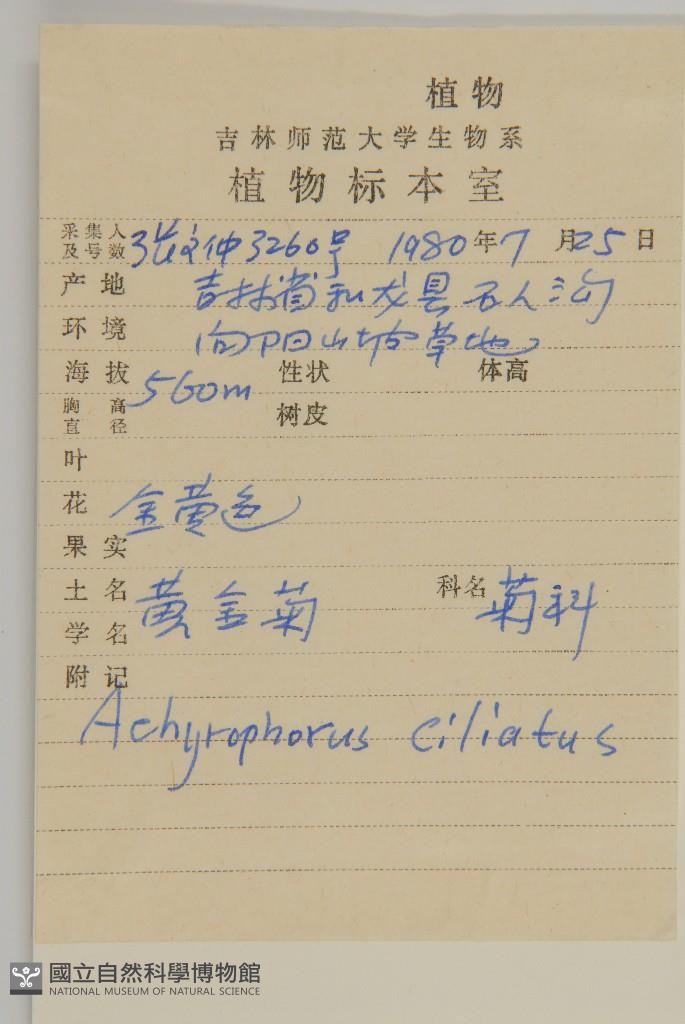 植物
吉林师范大学生物系
植物标本室
采集人及号数 文仲3260号 1980年7月25日
产地 吉林省和龙县石人沟
环境 向阳山坡草地
海拔 560m 性状 体高
胸高直径 树皮
叶
花 金黄色
果实
土名 黄金菊 科名 菊科
学名
附记
Achyrophorus ciliatus
國立自然科學博物館
NATIONAL MUSEUM OF NATURAL SCIENCE